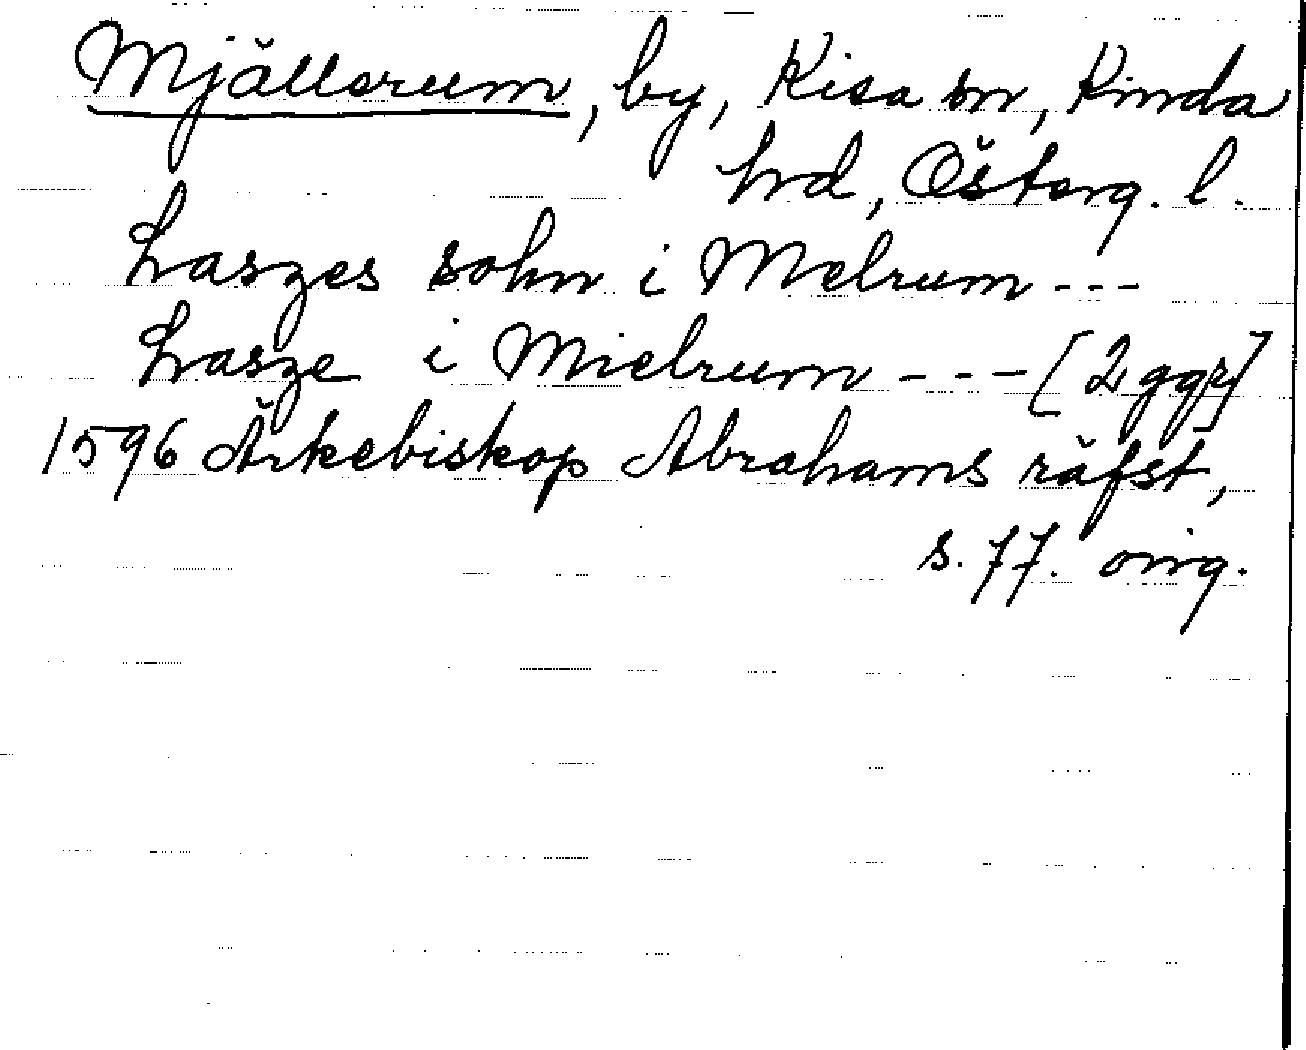 Mjällerum, by, Kisa sn, Kinda
hrd, Österg. l.
Laszes sohn i Melrum ---
Lasze i Mielrum --- [2 ggr]
1596 Ärkebiskop Abrahams räfst,
s. 77. orig.